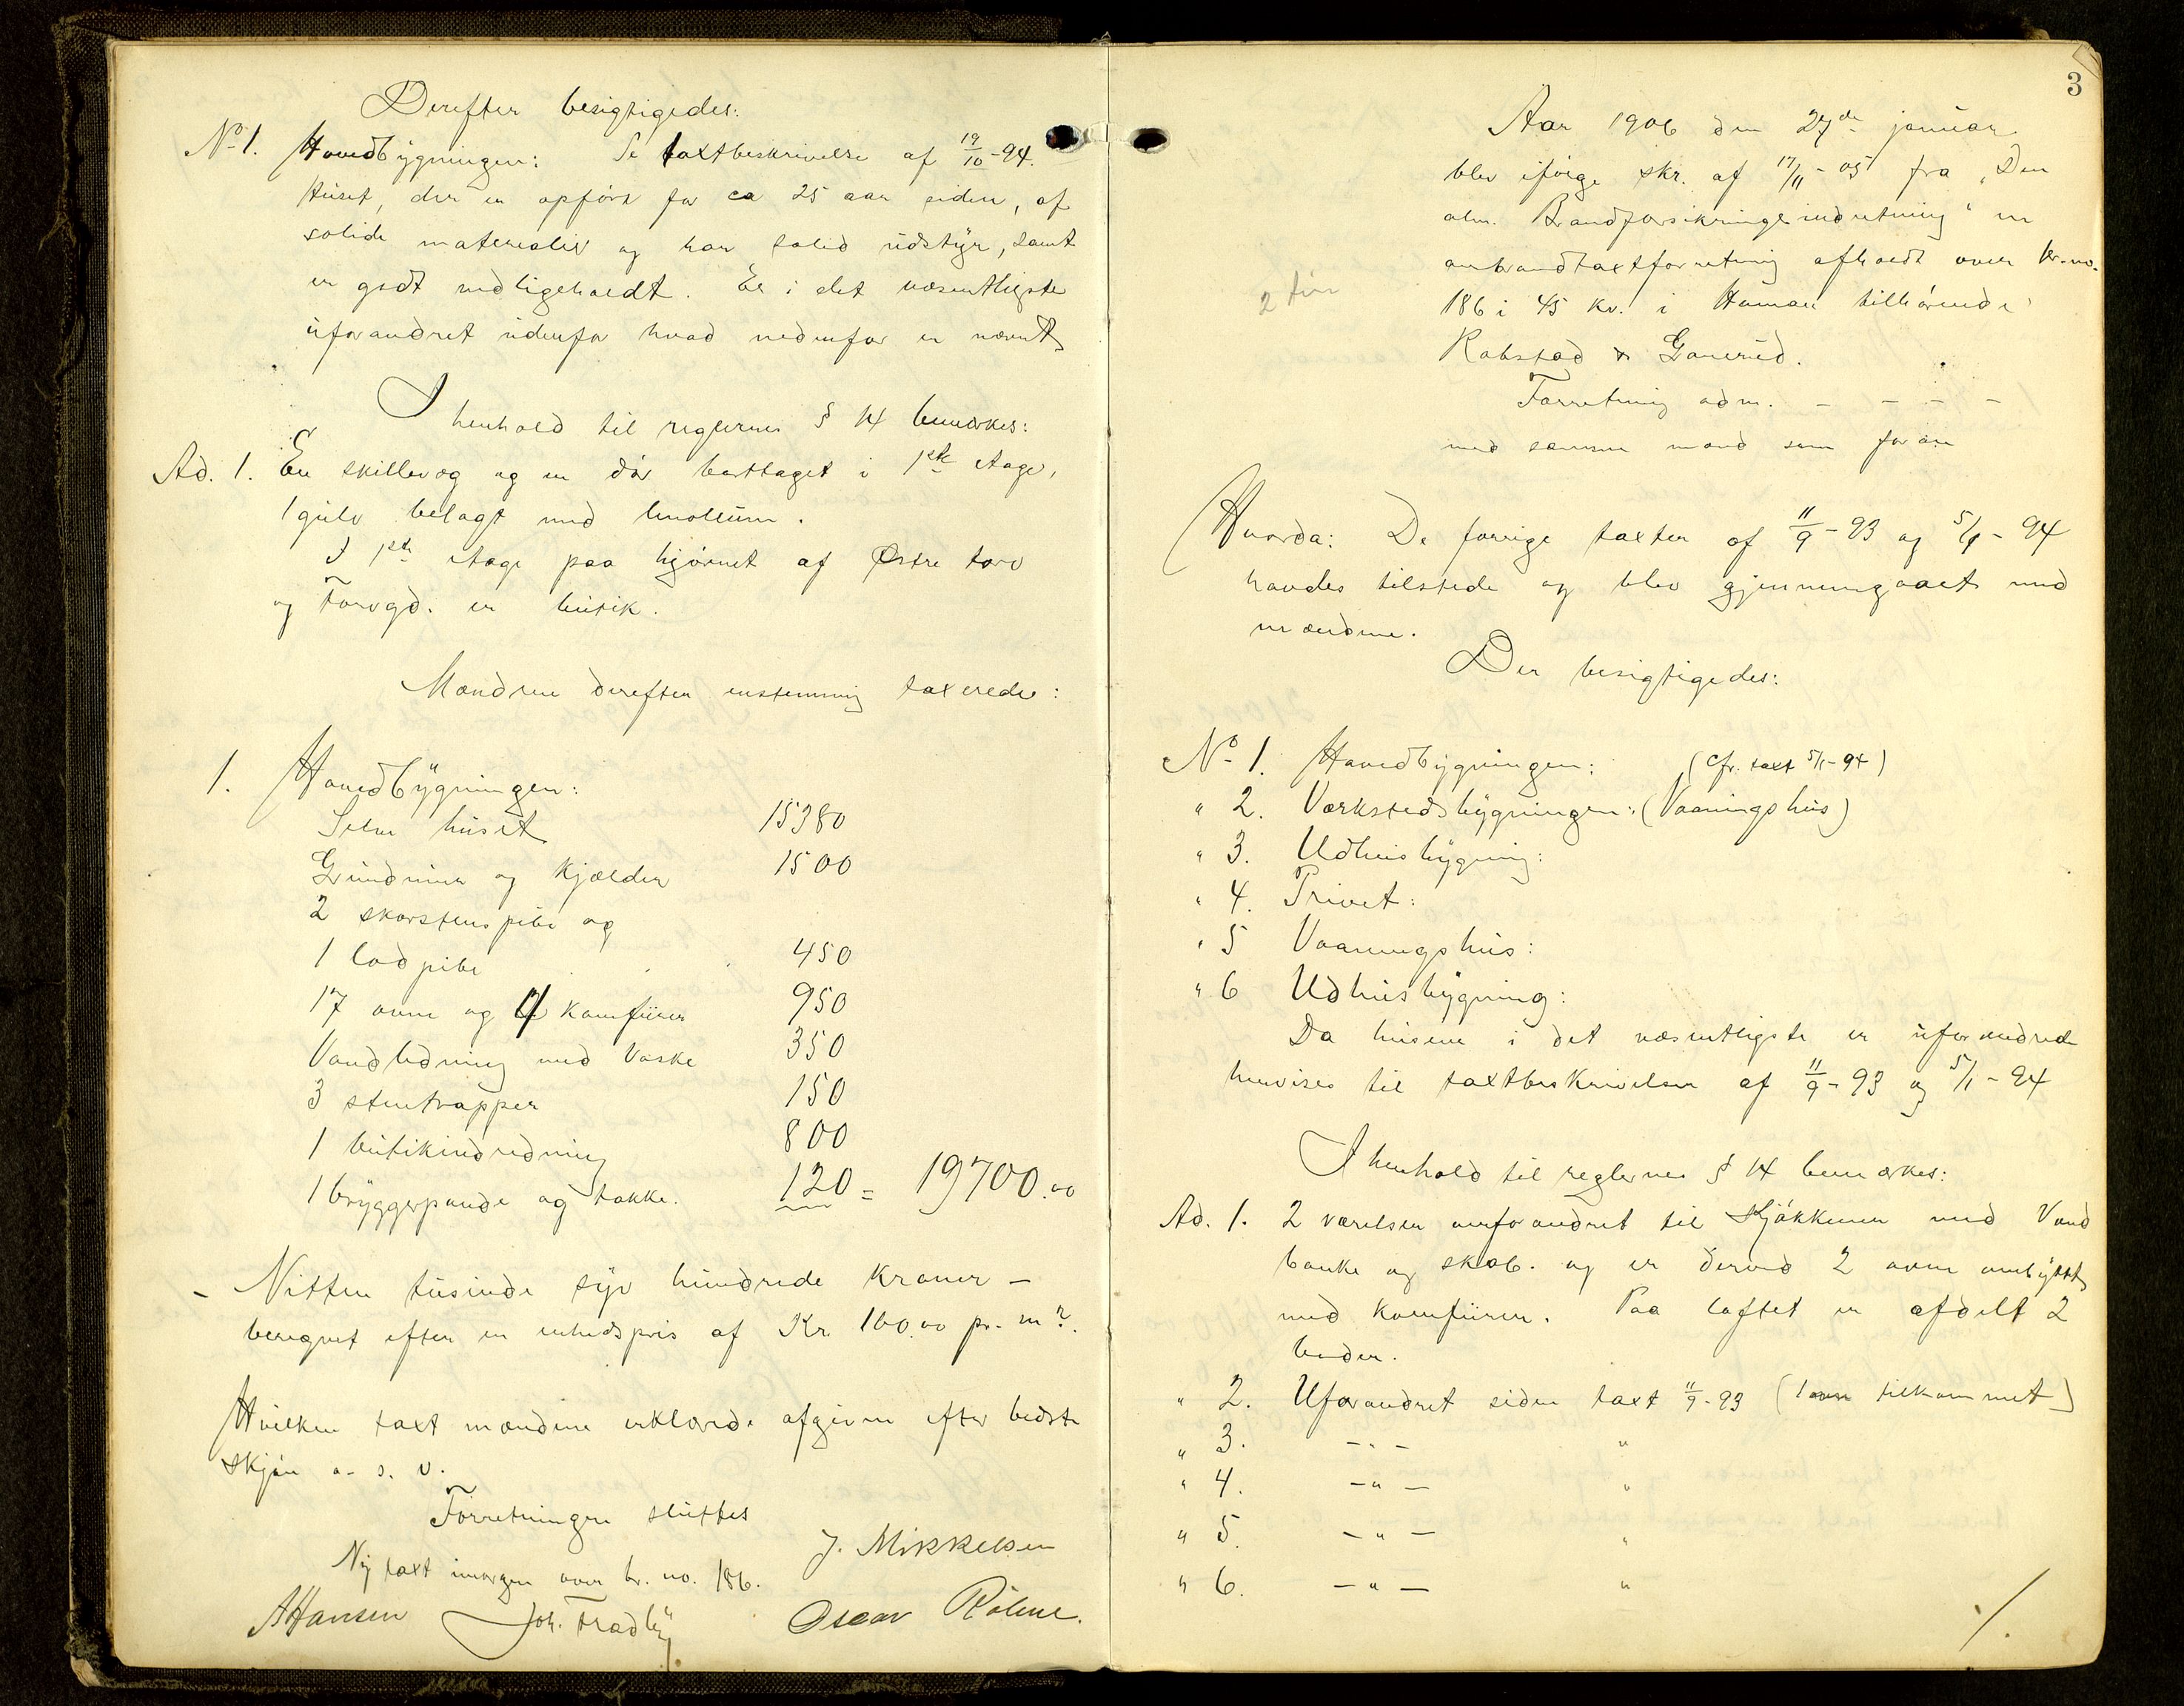 Derefter besigtigedes:
No 1. Hovedbygningen: Se taxtbeskrivelse af 19/10-94.
Huset, der er opført for ca 25 aar siden, af
solide materialer og har solid udstyr, samt
er godt vedligeholdt. Er i det væsentligste
uforandret udenfor hvad nedenfor er nævnt
I henhold til reglernes § 14 bemærkes:
Ad. 1. En skillevæg og en dør borttaget i 1ste etage,
1 gulv belagt med linoleum.
I 1ste etage paa hjørnet af Østre torv
og Torvgd. er butik.
Mændene derefter enstemmig taxerede:
1. Hovedbygningen:
Selve huset 15380
Grundmur og kjælder 1500
2 skorstenspiber og
1 lodpibe 450
17 ovne og 4 komfurer 950
Vandledning med vaske 350
3 stentrapper 150
1 butikindredning 800
1 bryggerpande og takke. 120 = 19700.00
- Nitten tusinde syv hundrede kroner -
beregnet efter en enhedspris af Kr. 160.00 pr. m2.
Hvilken taxt mændene erklærede afgiven efter bedste
skjøn o. s. v.
Forretningen sluttet
Ny taxt imorgen over br. no. 186.
J. Mikkelsen
A Hansen Joh. Oscar
3
Aar 1906 den 27de januar
blev ifølge skr. af 17/11-05 fra "Den
alm. Brandforsikringsindretning" en
ombrandtaxtforretning afholdt over br.no.
2 ført
186 i 45 kv. i Hamar tilhørende
Robstad & Gaverud.
Forretning adm. - - - -
med samme mænd som foran
Hvorda: De forrige taxter af 11/9-93 og 5/1-94
havdes tilstede og blev gjennemgaaet med
mændene.
Der besigtigedes:
No 1. Hovedbygningen: (Cfr. taxt 5/1-94)
" 2. Værkstedsbygningen: (Vaaningshus)
" 3. Udhusbygning:
" 4. Privet:
" 5 Vaaningshus:
" 6 Udhusbygning:
Da husene i det væsentligste er uforandrede
henvises til taxtbeskrivelser af 11/9-93 og 5/1-94
I henhold til reglernes § 14 bemærkes:
Ad. 1. 2 værelser omforandret til kjøkkener med Vand
bænke og skab. og er derved 2 ovne ombyttet
med komfurer. Paa loftet er afdelt 2
boder.
" 2. Uforandret siden taxt 11/9-93 (1 ovn tilkommet)
" 3. - " - "
" 4. - " - "
" 5. - " - "
" 6. - " - "
/.